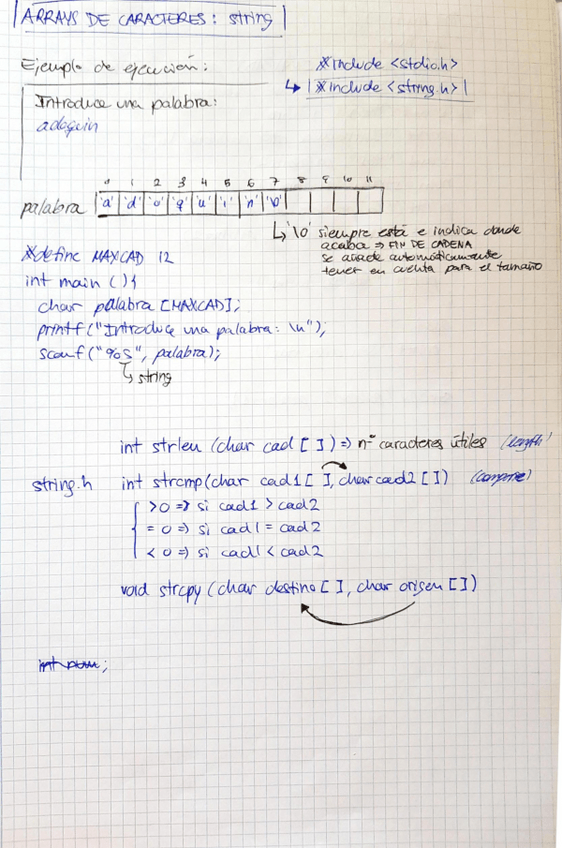 ARRAYS DE CARACTERES: string
Ejemplo de ejecución:
#include <stdio.h>
↳ #include <string.h>
Introduce una palabra:
adoquin
0 1 2 3 4 5 6 7 8 9 10 11
palabra 'a' 'd' 'o' 'q' 'u' 'i' 'n' '\0'
↳ '\0' siempre está e indica donde
acaba => FIN DE CADENA
se añade automáticamente
tener en cuenta para el tamaño
#define MAXCAD 12
int main (){
char palabra [MAXCAD];
printf("Introduce una palabra: \n");
scanf("%s", palabra);
↳ string
int strlen (char cad [ ]) => nº caracteres útiles (length)
string.h int strcmp(char cad1 [ ], char cad2 [ ]) (compare)
{ >0 => si cad1 > cad2
= 0 => si cad1 = cad2
< 0 => si cad1 < cad2
void strcpy (char destino [ ], char origen [ ])
int num;